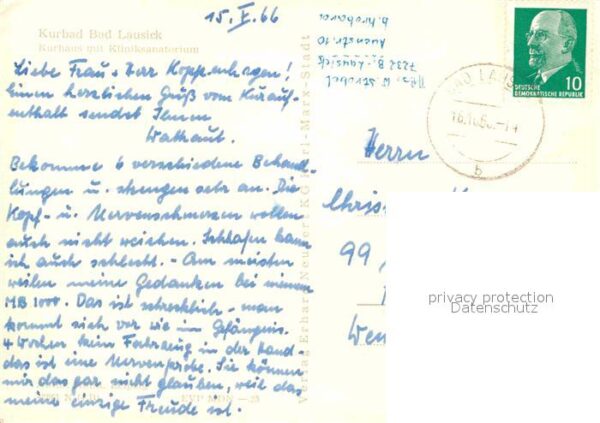 15. X. 66
Kurbad Bad Lausick
Kurhaus mit Kliniksanatorium
Liebe Frau u. Herr Koppenhagen!
Einen herzlichen Gruß vom Kurauf-
enthalt sendet Ihnen
Waltraut.
Bekomme 6 verschiedene Behand-
lungen u. strengen sehr an. Die
Kopf- u. Nervenschmerzen wollen
auch nicht weichen. Schlafen kann
ich auch schlecht. - Am meisten
weilen meine Gedanken bei meinem
MB 1000. Das ist schrecklich - man
kommt sich vor wie im Gefängnis.
4 Wochen kein Fahrzeug in der Hand
das ist eine Nervenprobe. Sie können
mir das gar nicht glauben, weil das
meine einzige Freude ist.
EVP MDN -,25
Verlag Erhard Neubert KG Karl-Marx-Stadt
Abs. W. Strobel
7232 B. Lausick
10
DEUTSCHE
DEMOKRATISCHE REPUBLIK
10
BAD LAUSICK
b
Herrn
99
privacy protection
Datenschutz